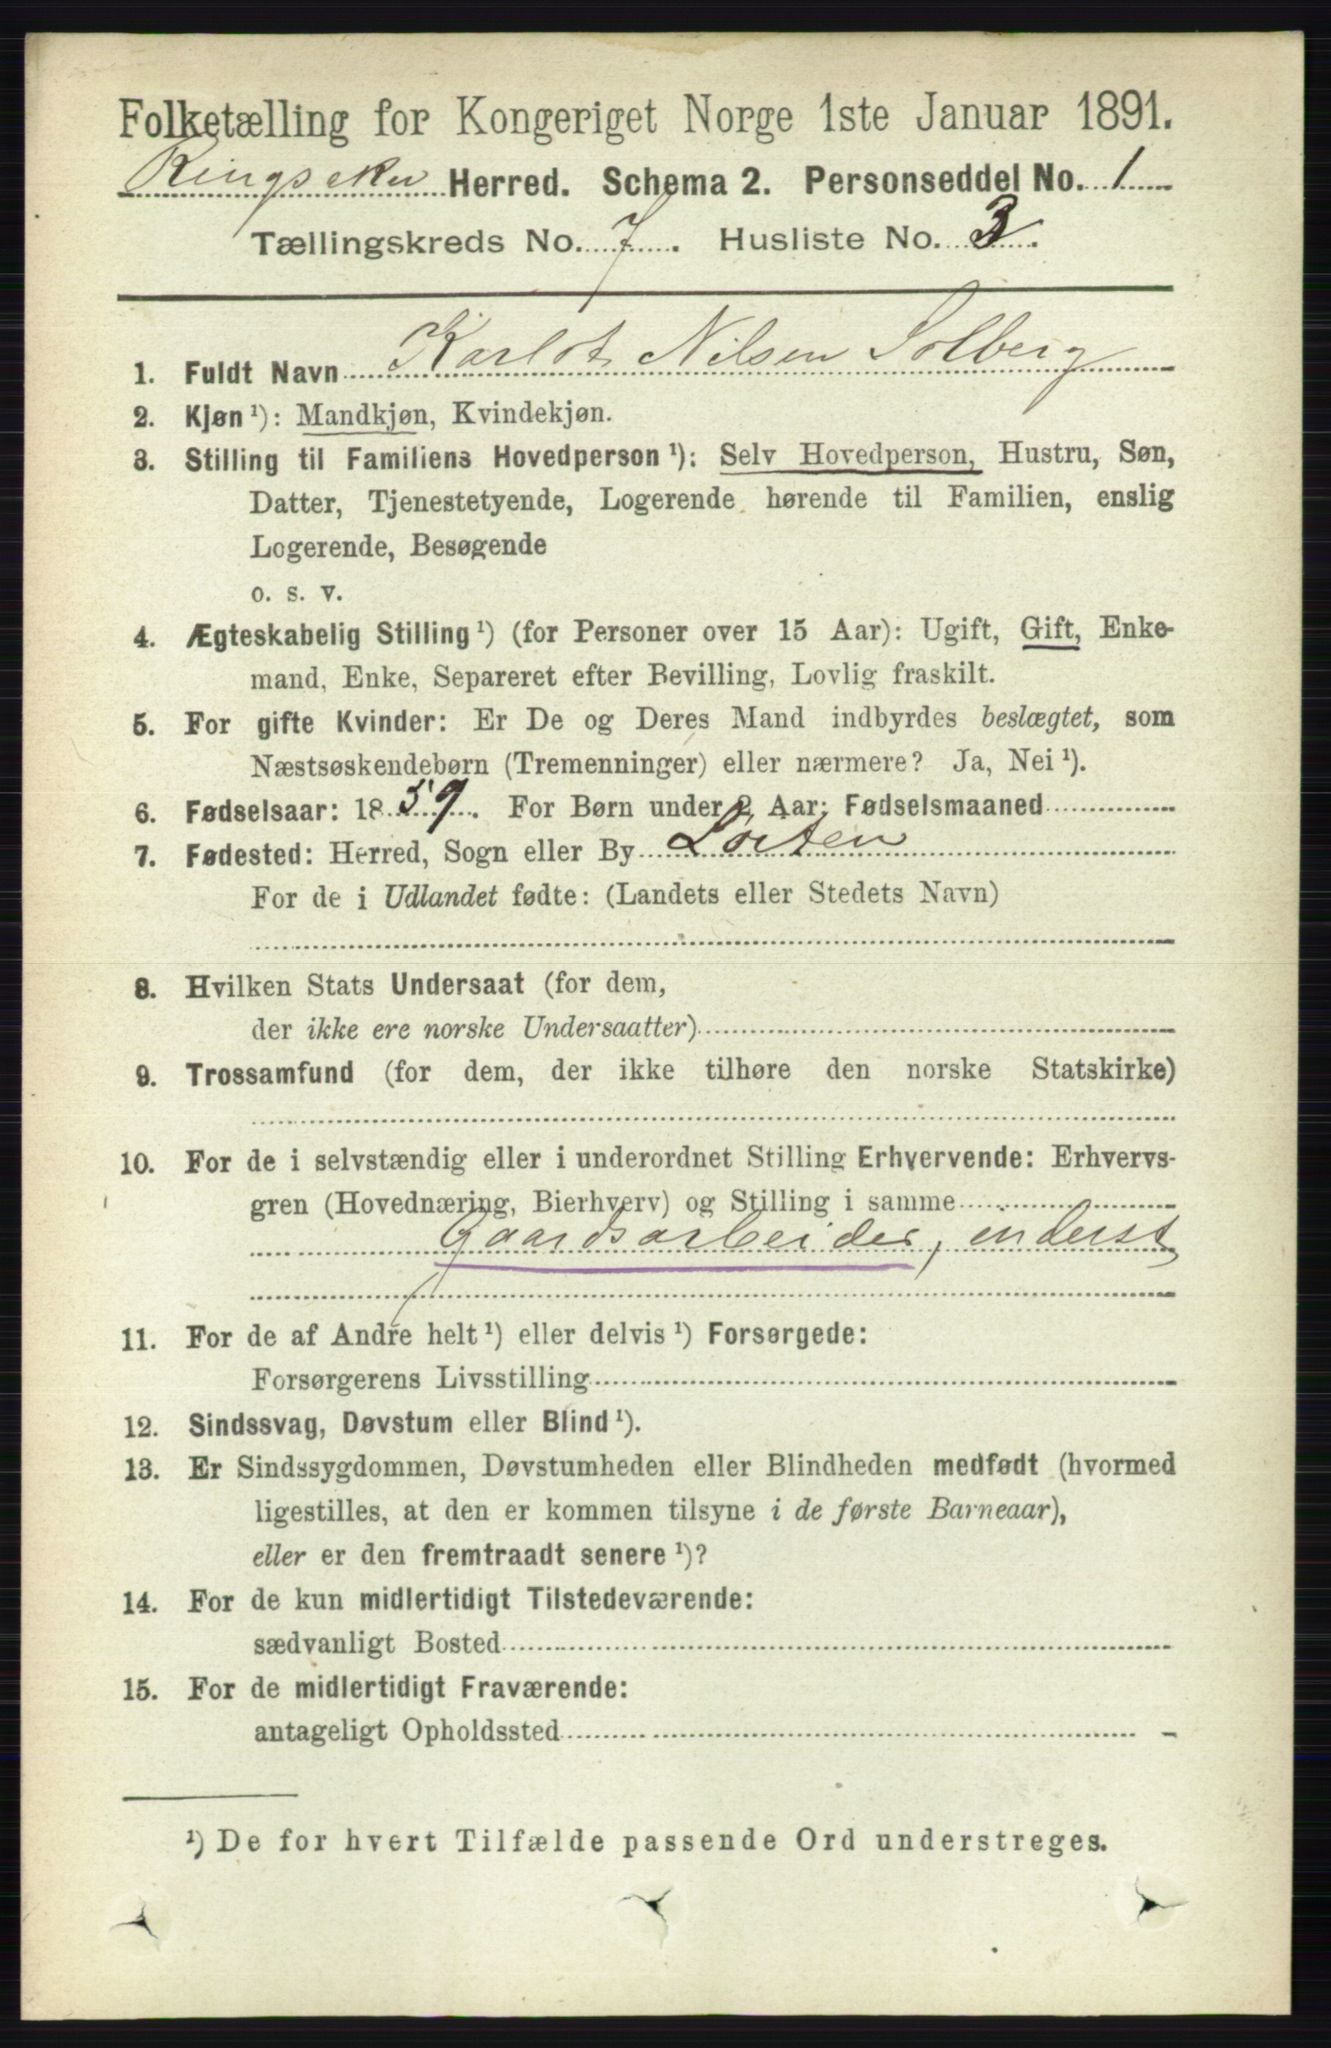 Folketælling for Kongeriget Norge 1ste Januar 1891.
Ringsaker Herred. Schema 2. Personseddel No. 1
Tællingskreds No. 7. Husliste No. 3.
1. Fuldt Navn Karlot Nilsen Solberg
2. Kjøn ¹): Mandkjøn, Kvindekjøn.
3. Stilling til Familiens Hovedperson ¹): Selv Hovedperson, Hustru, Søn,
Datter, Tjenestetyende, Logerende hørende til Familien, enslig
Logerende, Besøgende
o. s. v.
4. Ægteskabelig Stilling ¹) (for Personer over 15 Aar): Ugift, Gift, Enke-
mand, Enke, Separeret efter Bevilling, Lovlig fraskilt.
5. For gifte Kvinder: Er De og Deres Mand indbyrdes beslægtet, som
Næstsøskendebørn (Tremenninger) eller nærmere? Ja, Nei ¹).
6. Fødselsaar: 1859. For Børn under 2 Aar: Fødselsmaaned
7. Fødested: Herred, Sogn eller By Löiten
For de i Udlandet fødte: (Landets eller Stedets Navn)
8. Hvilken Stats Undersaat (for dem,
der ikke ere norske Undersaatter)
9. Trossamfund (for dem, der ikke tilhøre den norske Statskirke)
10. For de i selvstændig eller i underordnet Stilling Erhvervende: Erhvervs-
gren (Hovednæring, Bierhverv) og Stilling i samme
Gaardsarbeider, inderst
11. For de af Andre helt ¹) eller delvis ¹) Forsørgede:
Forsørgerens Livsstilling
12. Sindssvag, Døvstum eller Blind ¹).
13. Er Sindssygdommen, Døvstumheden eller Blindheden medfødt (hvormed
ligestilles, at den er kommen tilsyne i de første Barneaar),
eller er den fremtraadt senere ¹)?
14. For de kun midlertidigt Tilstedeværende:
sædvanligt Bosted
15. For de midlertidigt Fraværende:
antageligt Opholdssted
¹) De for hvert Tilfælde passende Ord understreges.